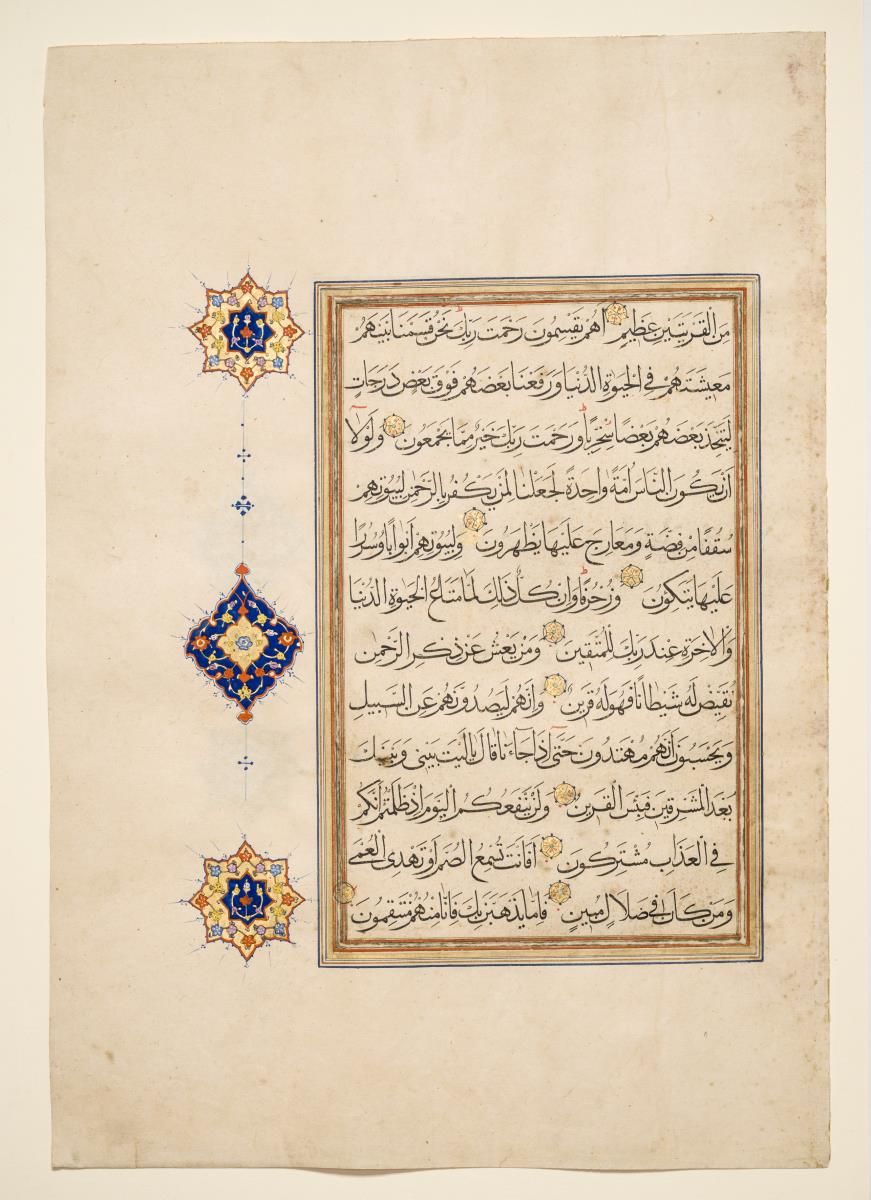 مِنَ الْقَرْيَتَيْنِ عَظِيمٍ أَهُمْ يَقْسِمُونَ رَحْمَتَ رَبِّكَ نَحْنُ قَسَمْنَا بَيْنَهُمْ
مَعِيشَتَهُمْ فِي الْحَيٰوةِ الدُّنْيَا وَرَفَعْنَا بَعْضَهُمْ فَوْقَ بَعْضٍ دَرَجَاتٍ
لِيَتَّخِذَ بَعْضُهُمْ بَعْضًا سُخْرِيًّا وَرَحْمَتُ رَبِّكَ خَيْرٌ مِمَّا يَجْمَعُونَ وَلَوْلَا
أَنْ يَكُونَ النَّاسُ أُمَّةً وَاحِدَةً لَجَعَلْنَا لِمَنْ يَكْفُرُ بِالرَّحْمٰنِ لِبُيُوتِهِمْ
سُقُفًا مِنْ فِضَّةٍ وَمَعَارِجَ عَلَيْهَا يَظْهَرُونَ وَلِبُيُوتِهِمْ أَبْوَابًا وَسُرُرًا
عَلَيْهَا يَتَّكِؤُنَ وَزُخْرُفًا وَإِنْ كُلُّ ذٰلِكَ لَمَّا مَتَاعُ الْحَيٰوةِ الدُّنْيَا
وَالْآخِرَةُ عِنْدَ رَبِّكَ لِلْمُتَّقِينَ وَمَنْ يَعْشُ عَنْ ذِكْرِ الرَّحْمٰنِ
نُقَيِّضْ لَهُ شَيْطَانًا فَهُوَ لَهُ قَرِينٌ وَإِنَّهُمْ لَيَصُدُّونَهُمْ عَنِ السَّبِيلِ
وَيَحْسَبُونَ أَنَّهُمْ مُهْتَدُونَ حَتَّى إِذَا جَاءَنَا قَالَ يَالَيْتَ بَيْنِي وَبَيْنَكَ
بُعْدَ الْمَشْرِقَيْنِ فَبِئْسَ الْقَرِينُ وَلَنْ يَنْفَعَكُمُ الْيَوْمَ إِذْ ظَلَمْتُمْ أَنَّكُمْ
فِي الْعَذَابِ مُشْتَرِكُونَ أَفَأَنْتَ تُسْمِعُ الصُّمَّ أَوْ تَهْدِي الْعُمْيَ
وَمَنْ كَانَ فِي ضَلَالٍ مُبِينٍ فَإِمَّا نَذْهَبَنَّ بِكَ فَإِنَّا مِنْهُمْ مُنْتَقِمُونَ